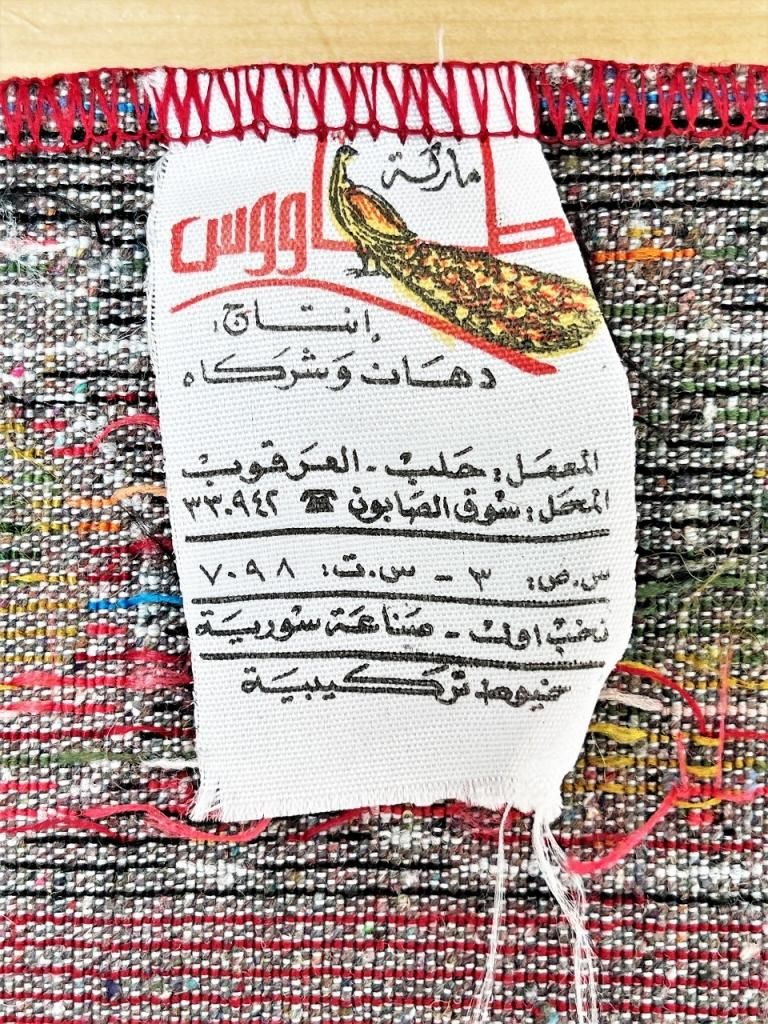 ماركة
طاووس
إنتاج:
دهان وشركاه
المعمل: حلب - العرقوب
المحل: سوق الصابون ☎ ٣٣٠٩٤٢
س.ص: ٣ - س.ت: ٧٠٩٨
نخب اول - صناعة سورية
خيوط تركيبية